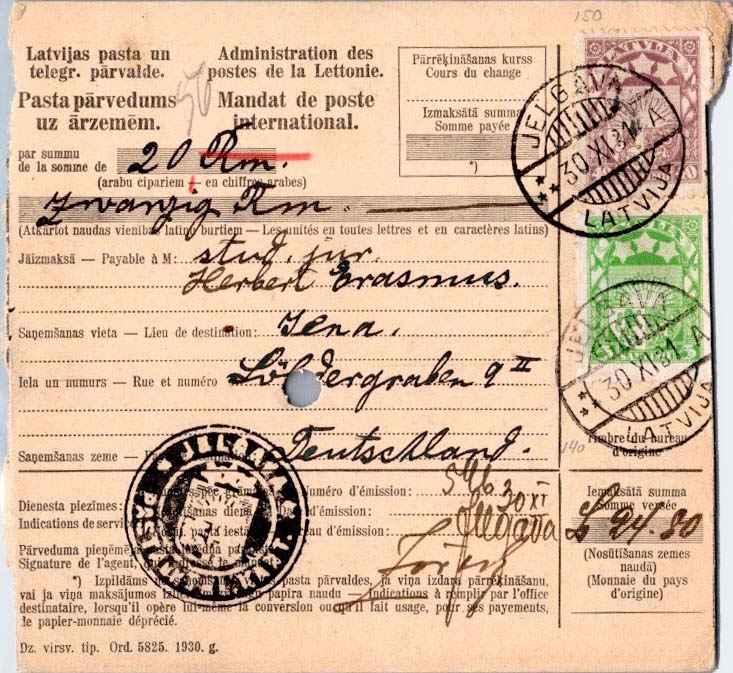 150
Latvijas pasta un
telegr. pārvalde.
Administration des
postes de la Lettonie.
Pasta pārvedums
uz ārzemēm.
Mandat de poste
international.
Pārrēķināšanas kurss
Cours du change
Izmaksātā summa
Somme payée
*)
LATVIJA
JELGAVA
30 XI 31 A
LATVIJA
par summu
de la somme de
20 Rm.
(arabu cipariem — en chiffres arabes)
Zwanzig Rm.
(Atkārtot naudas vienības latiņu burtiem — Les unités en toutes lettres et en caractères latins)
Jāizmaksā — Payable à M: stud. jur.
Herbert Erasmus.
Saņemšanas vieta — Lieu de destination: Jena.
JELGAVA
30 XI 31 A
LATVIJA
Iela un numurs — Rue et numéro Löbdergraben 9 II
Saņemšanas zeme — Deutschland.
140
Timbre du bureau
d'origine
Numéro d'émission: 
Dienesta piezīmes:
Indications de service
30 XI
d'émission: Jelgava
Iemaksātā summa
Somme versée
Ls 24.80
(Nosūtīšanas zemes
naudā)
(Monnaie du pays
d'origine)
Pārveduma pieņēmēja
Signature de l'agent, qui
*) Izpildāms no saņemšanas vietas pasta pārvaldes, ja viņa izdara pārrēķināšanu,
vai ja viņa maksājumos papīra naudu — Indications à remplir par l'office
destinataire, lorsqu'il opère lui-même la conversion ou qu'il fait usage, pour ses payements,
le papier-monnaie déprécié.
Dz. virsv. tip. Ord. 5825. 1930. g.